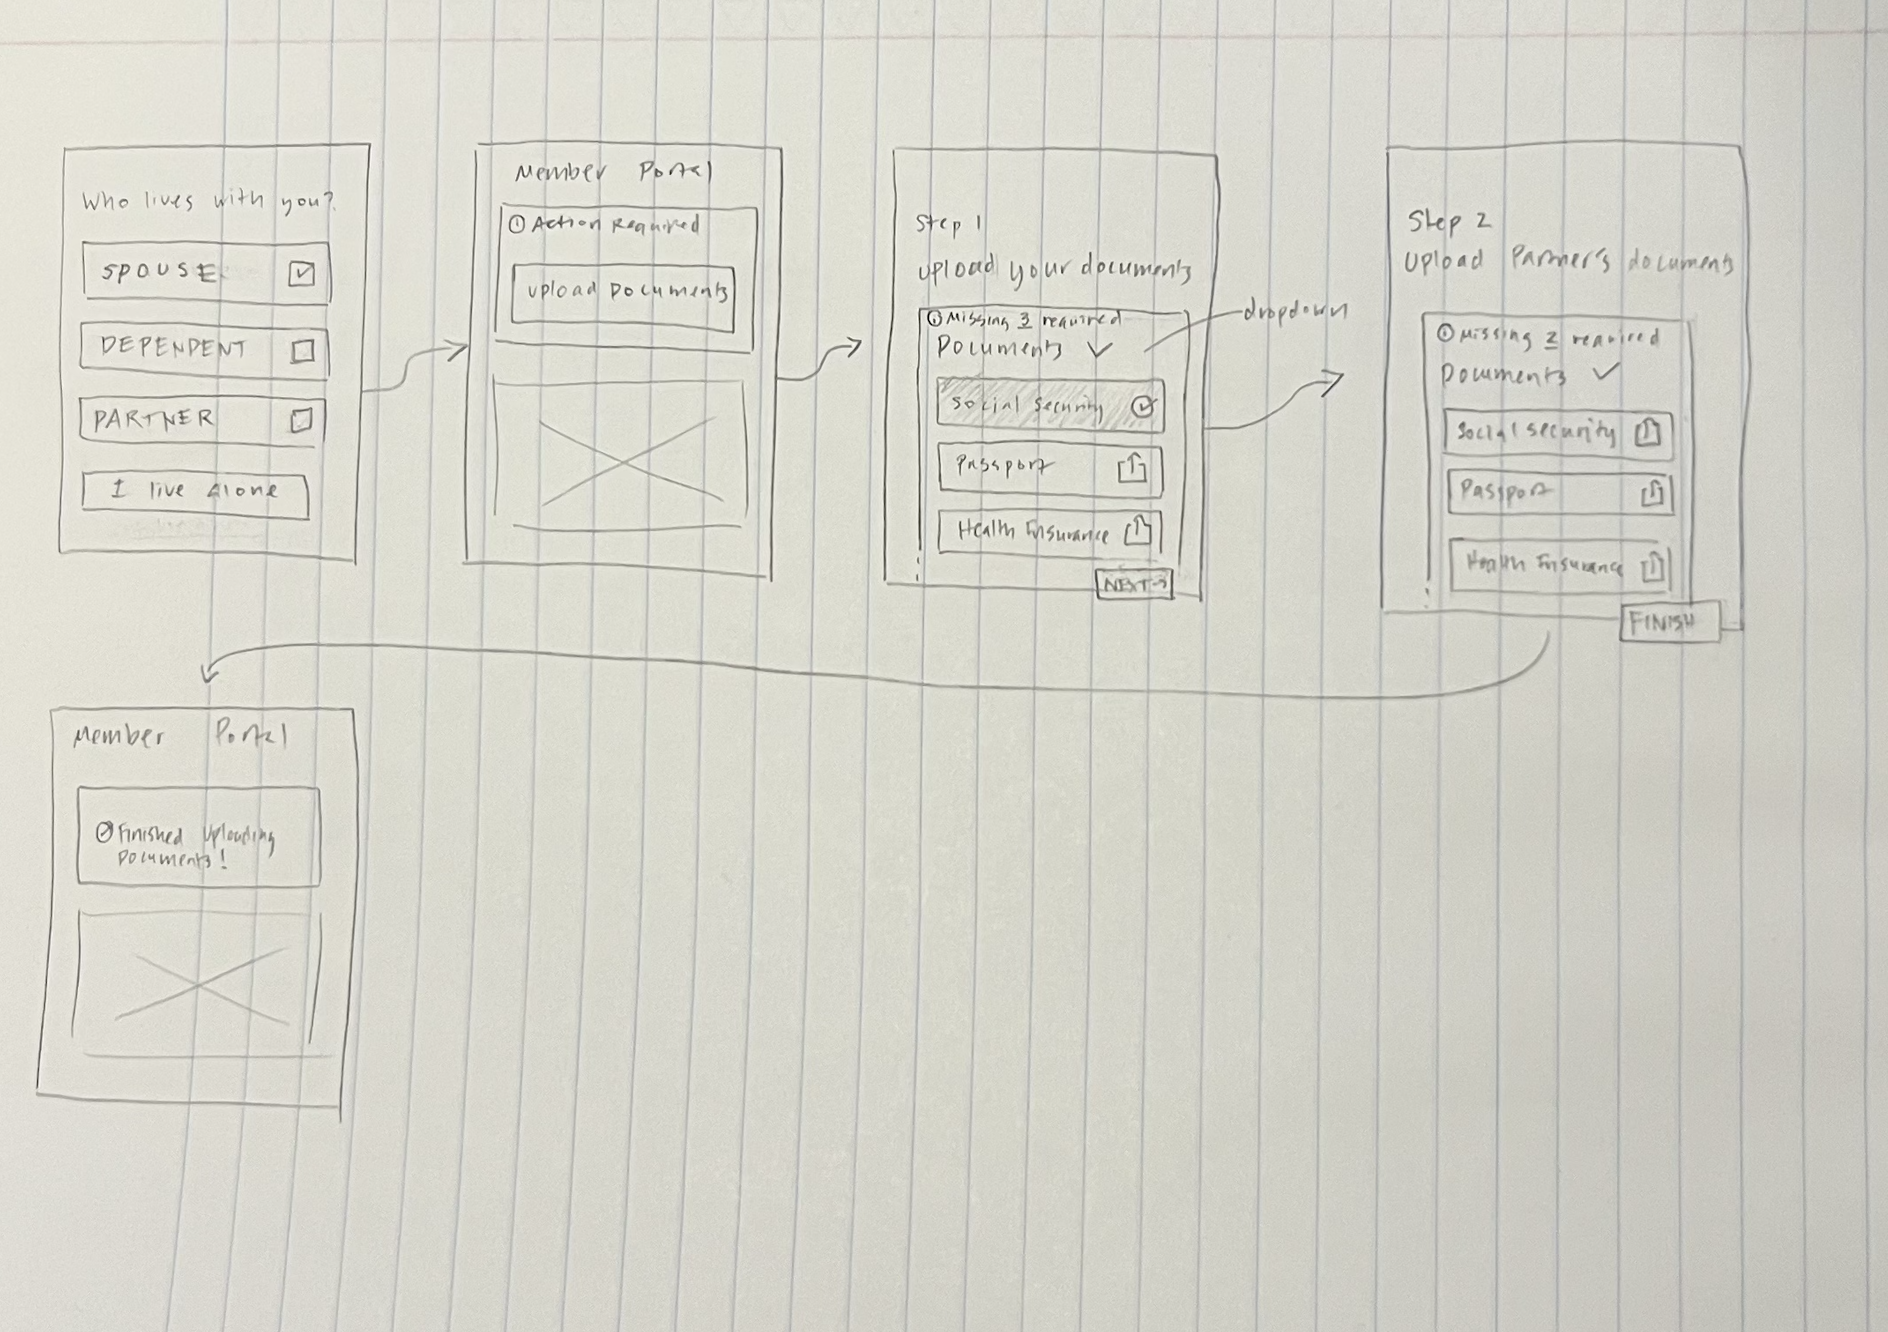 Who lives with you?
SPOUSE
DEPENDENT
PARTNER
I live alone
Member Portal
Action Required
Upload Documents
Step 1
Upload your documents
Missing 3 required
Documents
dropdown
Social Security
Passport
Health Insurance
NEXT→
Step 2
Upload Partner's documents
Missing 2 required
Documents
Social Security
Passport
Health Insurance
FINISH
Member Portal
Finished Uploading
Documents!